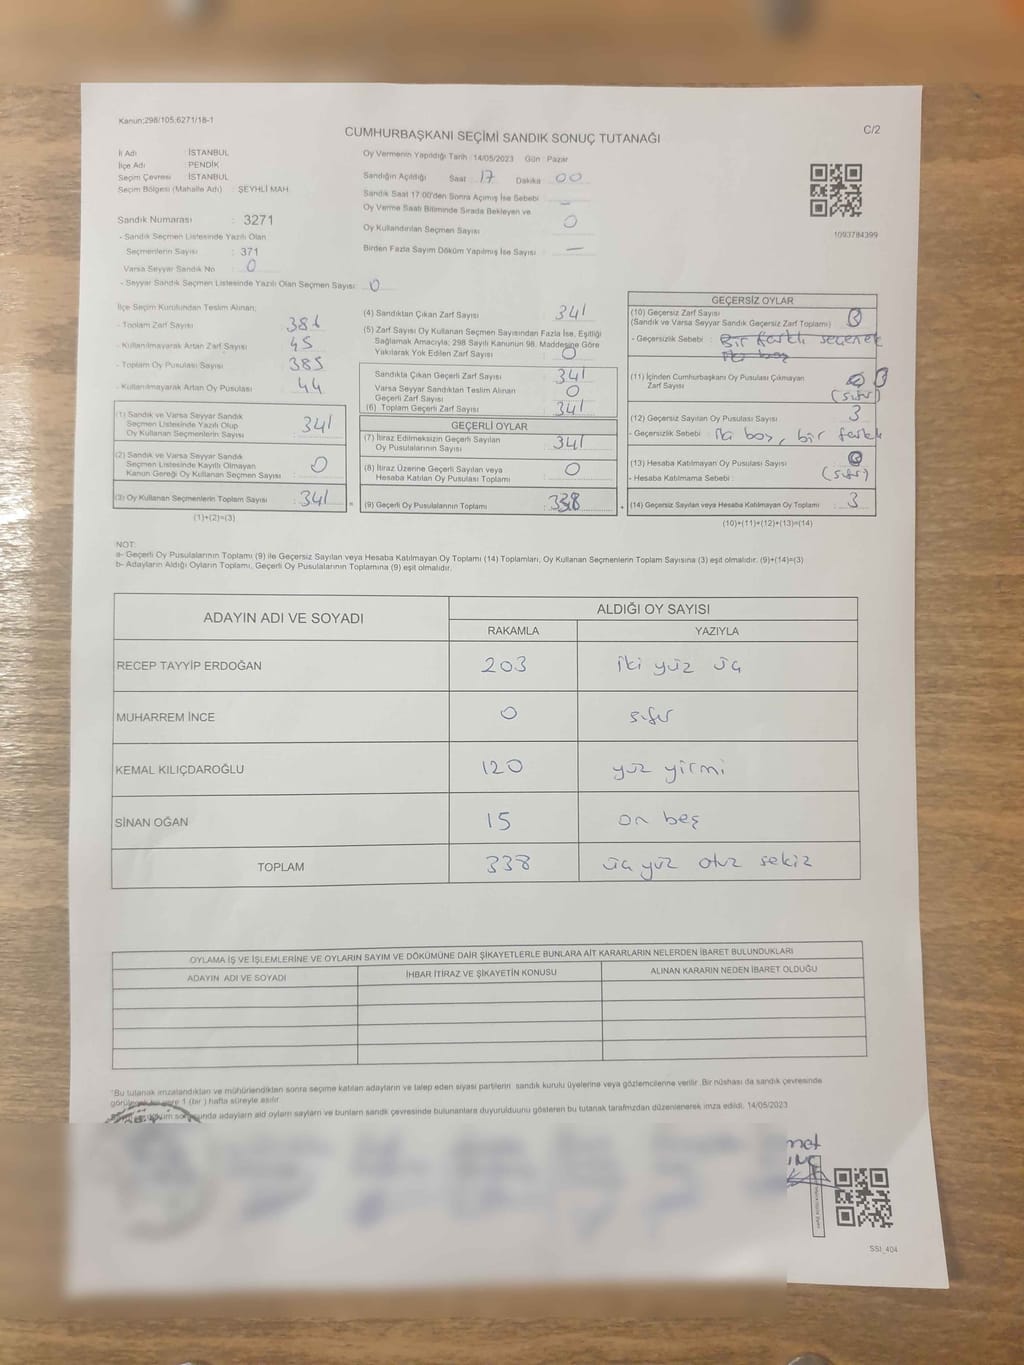 Kanun;298/105;6271/18-1
C/2
CUMHURBAŞKANI SEÇİMİ SANDIK SONUÇ TUTANAĞI
İl Adı : İSTANBUL
İlçe Adı : PENDİK
Seçim Çevresi : İSTANBUL
Seçim Bölgesi (Mahalle Adı) : ŞEYHLİ MAH.
Sandık Numarası : 3271
- Sandık Seçmen Listesinde Yazılı Olan
Seçmenlerin Sayısı : 371
Varsa Seyyar Sandık No : 0
- Seyyar Sandık Seçmen Listesinde Yazılı Olan Seçmen Sayısı: 0
Oy Vermenin Yapıldığı Tarih : 14/05/2023 Gün : Pazar
Sandığın Açıldığı Saat : 17 Dakika : 00
Sandık Saat 17:00'den Sonra Açımış İse Sebebi : —
Oy Verme Saati Bitiminde Sırada Bekleyen ve
Oy Kullandırılan Seçmen Sayısı : 0
Birden Fazla Sayım Döküm Yapılmış İse Sayısı : —
1093784399
İlçe Seçim Kurulundan Teslim Alınan;
- Toplam Zarf Sayısı : 386
- Kullanılmayarak Artan Zarf Sayısı : 45
- Toplam Oy Pusulası Sayısı : 385
- Kullanılmayarak Artan Oy Pusulası : 44
(1) Sandık ve Varsa Seyyar Sandık
Seçmen Listesinde Yazılı Olup
Oy Kullanan Seçmenlerin Sayısı : 341
(2) Sandık ve Varsa Seyyar Sandık
Seçmen Listesinde Kayıtlı Olmayan
Kanun Gereği Oy Kullanan Seçmen Sayısı : 0
(3) Oy Kullanan Seçmenlerin Toplam Sayısı : 341
(1)+(2)=(3)
(4) Sandıktan Çıkan Zarf Sayısı : 341
(5) Zarf Sayısı Oy Kullanan Seçmen Sayısından Fazla İse, Eşitliği
Sağlamak Amacıyla; 298 Sayılı Kanunun 98. Maddesine Göre
Yakılarak Yok Edilen Zarf Sayısı : 0
Sandıkta Çıkan Geçerli Zarf Sayısı : 341
Varsa Seyyar Sandıktan Teslim Alınan
Geçerli Zarf Sayısı : 0
(6) Toplam Geçerli Zarf Sayısı : 341
GEÇERLİ OYLAR
(7) İtiraz Edilmeksizin Geçerli Sayılan
Oy Pusulalarının Sayısı : 341
(8) İtiraz Üzerine Geçerli Sayılan veya
Hesaba Katılan Oy Pusulası Toplamı : 0
(9) Geçerli Oy Pusulalarının Toplamı : 338
GEÇERSİZ OYLAR
(10) Geçersiz Zarf Sayısı
(Sandık ve Varsa Seyyar Sandık Geçersiz Zarf Toplamı) :
- Geçersizlik Sebebi : Bir farklı seçenek
iki boş
(11) İçinden Cumhurbaşkanı Oy Pusulası Çıkmayan
Zarf Sayısı : (sıfır)
(12) Geçersiz Sayılan Oy Pusulası Sayısı : 3
- Geçersizlik Sebebi : iki boş, bir farklı
(13) Hesaba Katılmayan Oy Pusulası Sayısı :
- Hesaba Katılmama Sebebi : (sıfır)
(14) Geçersiz Sayılan veya Hesaba Katılmayan Oy Toplamı : 3
(10)+(11)+(12)+(13)=(14)
NOT:
a- Geçerli Oy Pusulalarının Toplamı (9) ile Geçersiz Sayılan veya Hesaba Katılmayan Oy Toplamı (14) Toplamları, Oy Kullanan Seçmenlerin Toplam Sayısına (3) eşit olmalıdır. (9)+(14)=(3)
b- Adayların Aldığı Oyların Toplamı, Geçerli Oy Pusulalarının Toplamına (9) eşit olmalıdır.
ADAYIN ADI VE SOYADI
ALDIĞI OY SAYISI
RAKAMLA YAZIYLA
RECEP TAYYİP ERDOĞAN 203 iki yüz üç
MUHARREM İNCE 0 sıfır
KEMAL KILIÇDAROĞLU 120 yüz yirmi
SİNAN OĞAN 15 on beş
TOPLAM 338 üç yüz otuz sekiz
OYLAMA İŞ VE İŞLEMLERİNE VE OYLARIN SAYIM VE DÖKÜMÜNE DAİR ŞİKAYETLERLE BUNLARA AİT KARARLARIN NELERDEN İBARET BULUNDUKLARI
ADAYIN ADI VE SOYADI İHBAR İTİRAZ VE ŞİKAYETİN KONUSU ALINAN KARARIN NEDEN İBARET OLDUĞU
*Bu tutanak imzalandıktan ve mühürlendikten sonra seçime katılan adayların ve talep eden siyasi partilerin sandık kurulu üyelerine veya gözlemcilerine verilir. Bir nüshası da sandık çevresinde
görülecek bir yere 1 (bir ) hafta süreyle asılır.
adayların ald oyların sayıları ve bunların sandık çevresinde bulunanlara duyurulduunu gösteren bu tutanak tarafımızdan düzenlenerek imza edildi. 14/05/2023
SSI_404